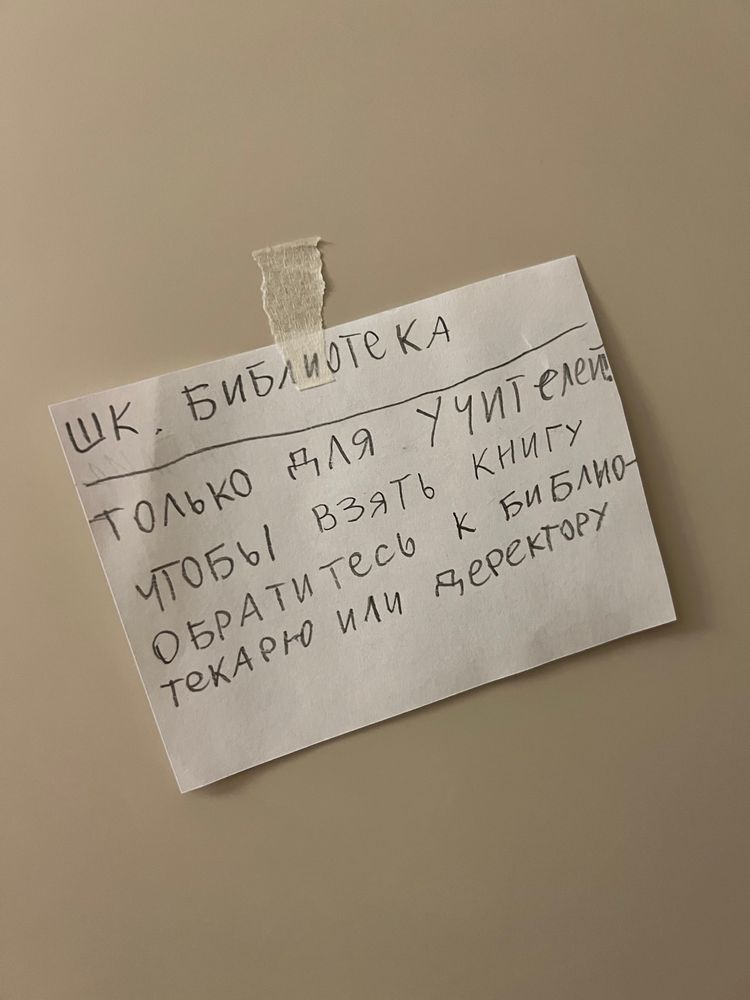 ШК. БИБЛИОТЕКА
ТОЛЬКО ДЛЯ УЧИТЕЛЕЙ!
ЧТОБЫ ВЗЯТЬ КНИГУ
ОБРАТИТЕСЬ К БИБЛИО-
ТЕКАРЮ ИЛИ ДЕРЕКТОРУ